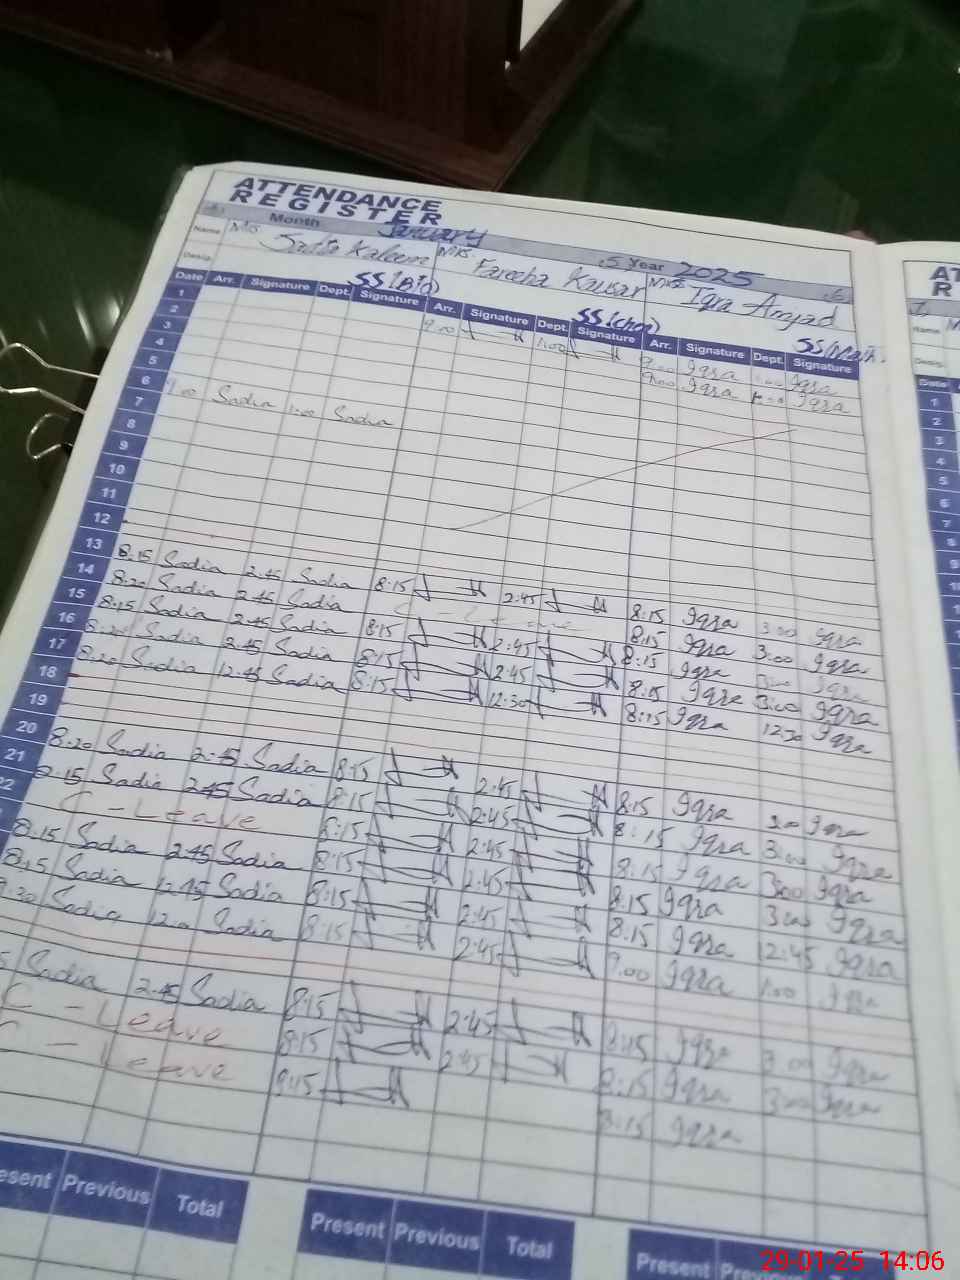 ATTENDANCE
REGISTER
Month January 5 Year 2025
Name Mrs. Sadia Kaleem Mrs. Fareeha Kausar Miss Iqra Amjad
Desig. SS(Bio) SS(Che) SS(Math.
Date Arr. Signature Dept. Signature Arr. Signature Dept. Signature Arr. Signature Dept. Signature
1
2 9:00 1:00 9:00 Iqra 1:00 Iqra
3 9:00 Iqra Iqra
4
5
6 9:00 Sadia 1:00 Sadia
7
8
9
10
11
12
13 8:15 Sadia 2:45 Sadia 8:15 2:45 8:15 Iqra 3:00 Iqra
14 8:20 Sadia 2:45 Sadia C - Leave 8:15 Iqra 3:00 Iqra
15 8:15 Sadia 2:45 Sadia 8:15 2:45 8:15 Iqra 3:00 Iqra
16 8:20 Sadia 2:45 Sadia 8:15 2:45 8:15 Iqra 3:00 Iqra
17 8:20 Sadia 12:45 Sadia 8:15 12:30 8:15 Iqra 12:30 Iqra
18
19
20 8:20 Sadia 2:45 Sadia 8:15 2:45 8:15 Iqra Iqra
21 8:15 Sadia 2:45 Sadia 8:15 2:45 8:15 Iqra 3:00 Iqra
22 C - Leave 8:15 2:45 8:15 Iqra 3:00 Iqra
8:15 Sadia 2:45 Sadia 8:15 2:45 8:15 Iqra 3:00 Iqra
8:15 Sadia 12:45 Sadia 8:15 2:45 8:15 Iqra 12:45 Iqra
Sadia Sadia 8:15 2:45 9:00 Iqra 1:00 Iqra
5 Sadia 2:45 Sadia 8:15 2:45 8:15 Iqra 3:00 Iqra
C - Leave 8:15 2:45 8:15 Iqra 3:00 Iqra
C - Leave 8:15 8:15 Iqra
esent Previous Total Present Previous Total Present Previous
AT
R
Name M
Desig.
Date
1
2
3
4
5
6
7
8
9
29-01-25 14:06